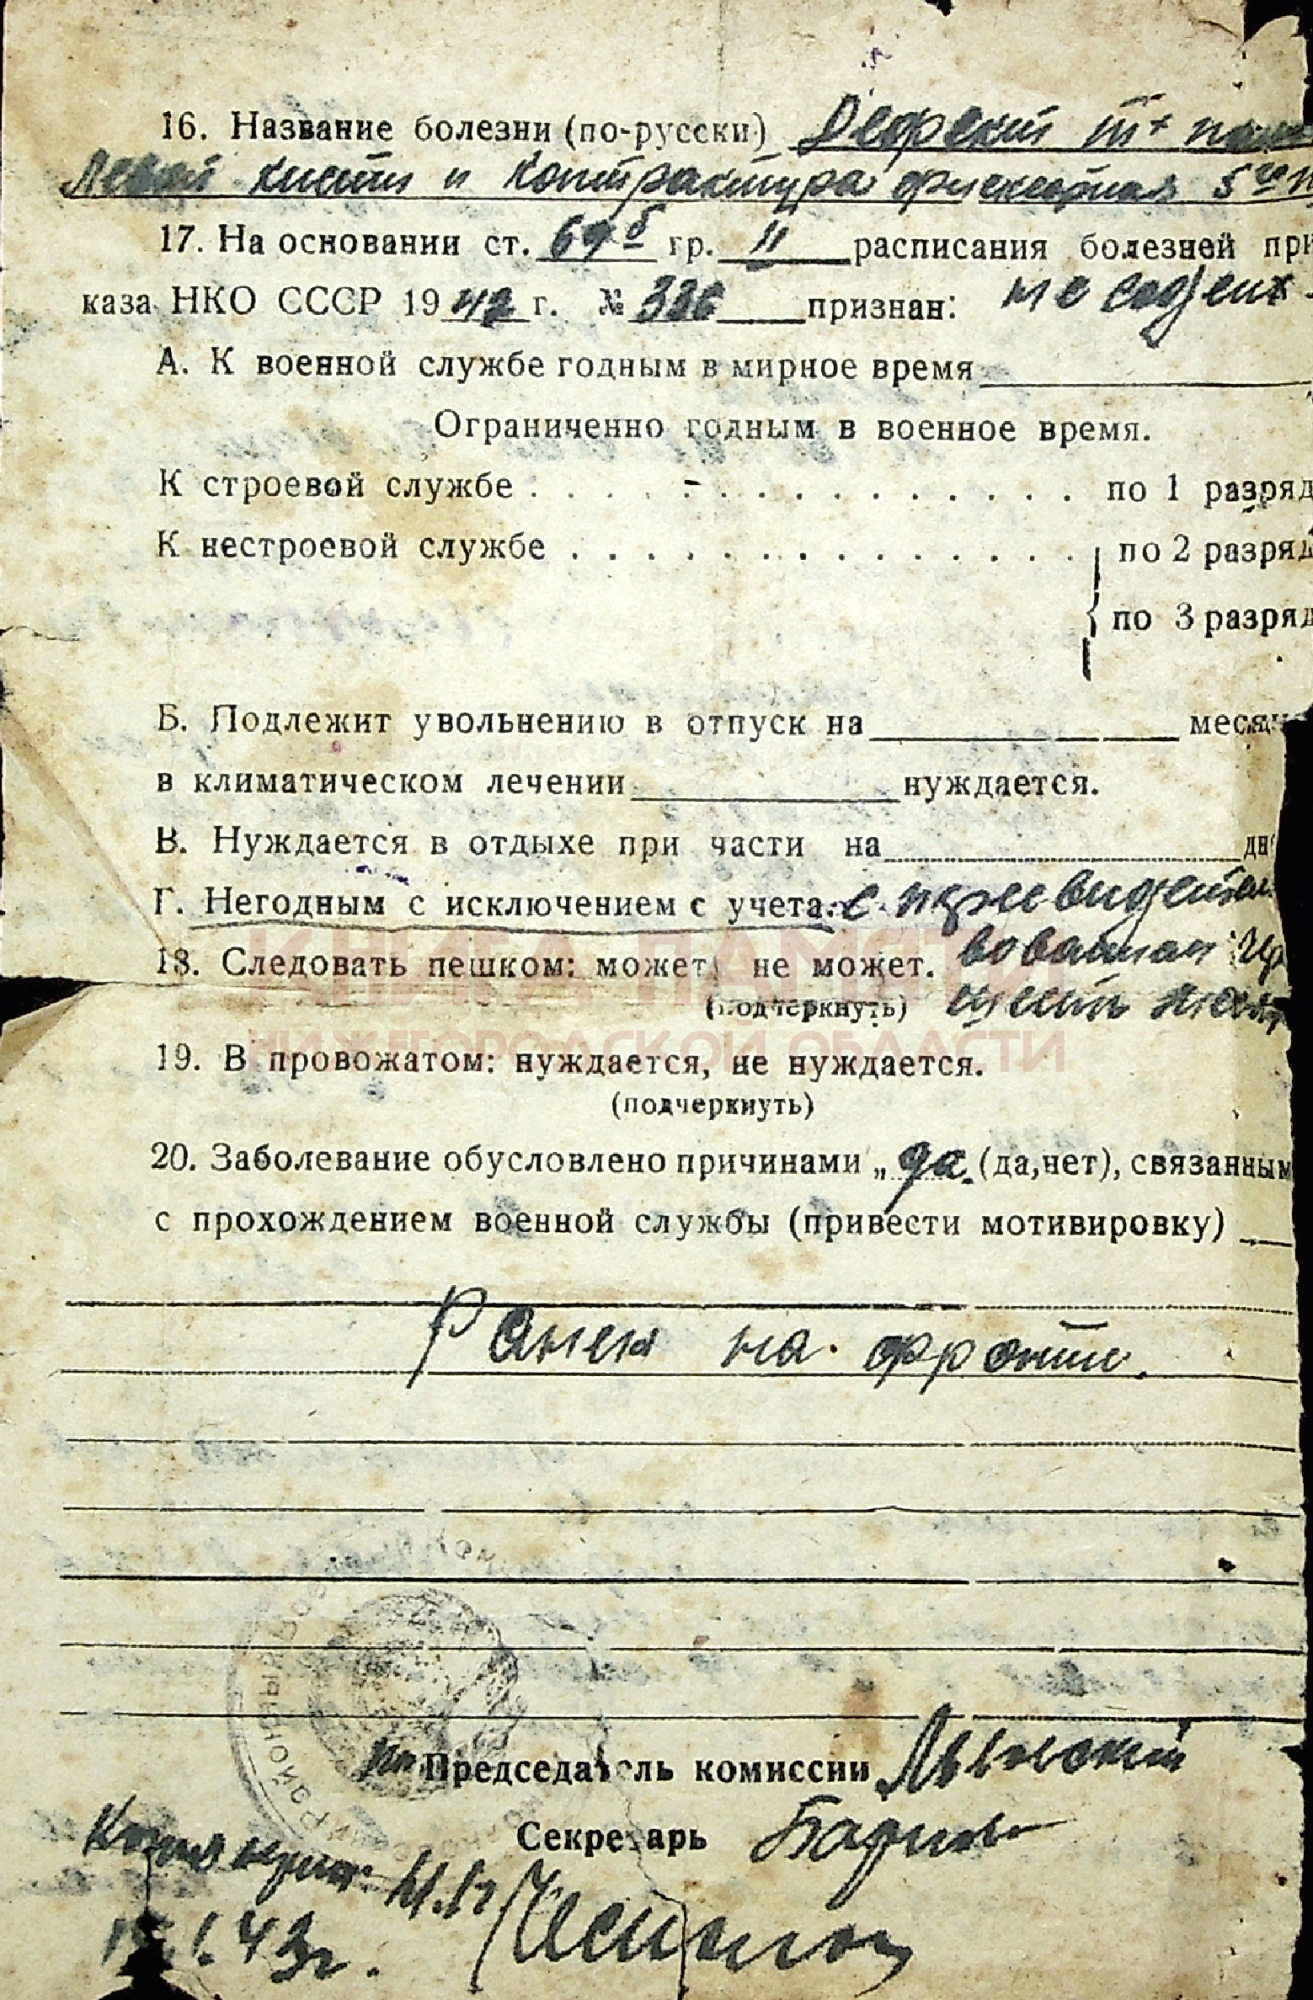 16. Название болезни (по-русски) Дефект
левой кисти и контрактура 5
17. На основании ст. 69 б гр. II расписания болезней при
каза НКО СССР 1942 г. № 336 признан:
А. К военной службе годным в мирное время
Ограниченно годным в военное время.
К строевой службе . . . . . . . . . . . . . . . по 1 разряд
К нестроевой службе . . . . . . . . . . . . . . по 2 разряд
по 3 разряд
Б. Подлежит увольнению в отпуск на месяц
в климатическом лечении нуждается.
В. Нуждается в отдыхе при части на дн
Г. Негодным с исключением с учета. с переосвидетель
18. Следовать пешком: может, не может. 
(подчеркнуть) шесть
КНИГА ПАМЯТИ
НИЖЕГОРОДСКОЙ ОБЛАСТИ
19. В провожатом: нуждается, не нуждается.
(подчеркнуть)
20. Заболевание обусловлено причинами „да. (да, нет), связанным
с прохождением военной службы (привести мотивировку)
Ранен на фронте.
Председатель комиссии
Секретарь
43г.